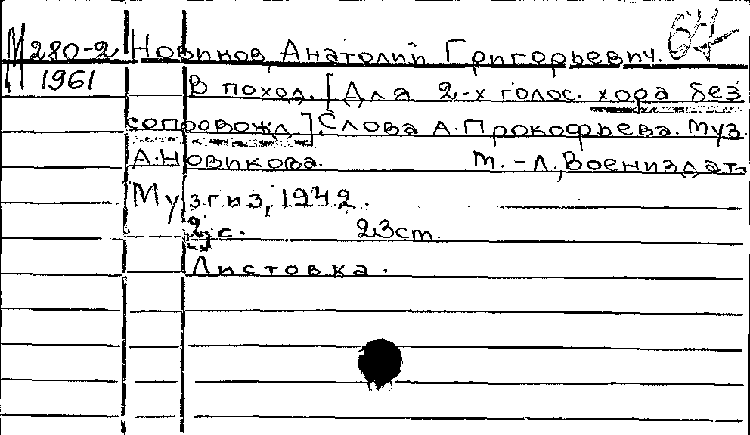 М 280-2 Новиков, Анатолий Григорьевич. 64
1961 В поход. [Для 2-х голос. хора без
сопровожд.] Слова А. Прокофьева. Муз.
А. Новикова. М.-Л., Воениздат
Музгиз, 1942.
2 с. 23 ст.
Листовка.